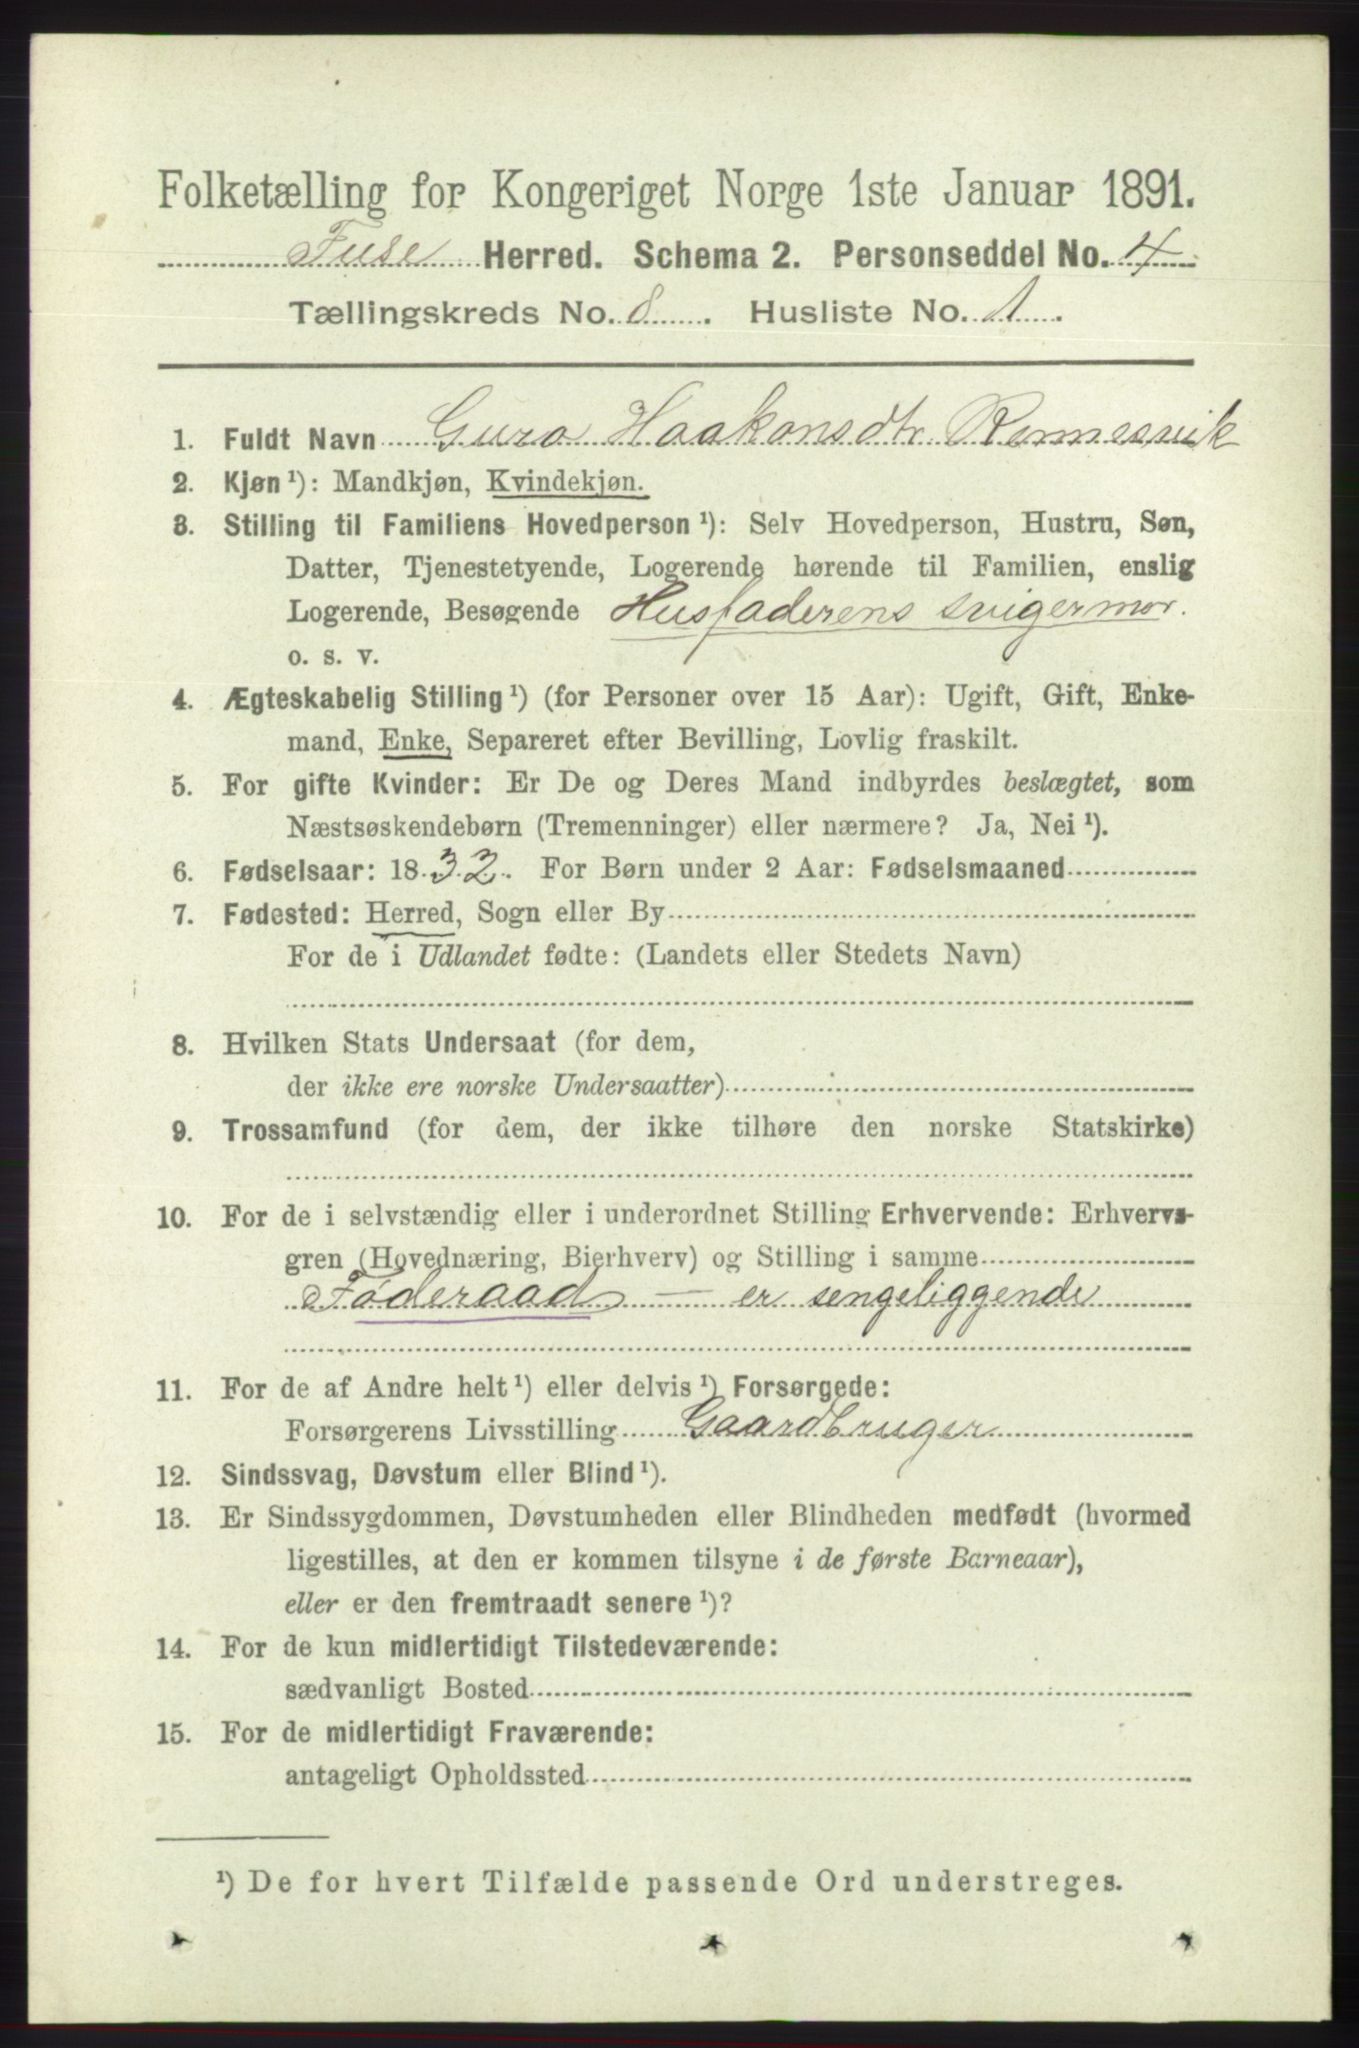 Folketælling for Kongeriget Norge 1ste Januar 1891.
Fuse Herred. Schema 2. Personseddel No. 4
Tællingskreds No. 8. Husliste No. 1.
1. Fuldt Navn Guro Haakonsdtr. Rennesvik
2. Kjøn¹): Mandkjøn, Kvindekjøn.
3. Stilling til Familiens Hovedperson¹): Selv Hovedperson, Hustru, Søn,
Datter, Tjenestetyende, Logerende hørende til Familien, enslig
Logerende, Besøgende Husfaderens svigermor.
o. s. v.
4. Ægteskabelig Stilling¹) (for Personer over 15 Aar): Ugift, Gift, Enke-
mand, Enke, Separeret efter Bevilling, Lovlig fraskilt.
5. For gifte Kvinder: Er De og Deres Mand indbyrdes beslægtet, som
Næstsøskendebørn (Tremenninger) eller nærmere? Ja, Nei¹).
6. Fødselsaar: 1832. For Børn under 2 Aar: Fødselsmaaned
7. Fødested: Herred, Sogn eller By
For de i Udlandet fødte: (Landets eller Stedets Navn)
8. Hvilken Stats Undersaat (for dem,
der ikke ere norske Undersaatter)
9. Trossamfund (for dem, der ikke tilhøre den norske Statskirke)
10. For de i selvstændig eller i underordnet Stilling Erhvervende: Erhvervs-
gren (Hovednæring, Bierhverv) og Stilling i samme
Føderaad — er sengeliggende
11. For de af Andre helt¹) eller delvis¹) Forsørgede:
Forsørgerens Livsstilling Gaardbruger
12. Sindssvag, Døvstum eller Blind¹).
13. Er Sindssygdommen, Døvstumheden eller Blindheden medfødt (hvormed
ligestilles, at den er kommen tilsyne i de første Barneaar),
eller er den fremtraadt senere¹)?
14. For de kun midlertidigt Tilstedeværende:
sædvanligt Bosted
15. For de midlertidigt Fraværende:
antageligt Opholdssted
¹) De for hvert Tilfælde passende Ord understreges.